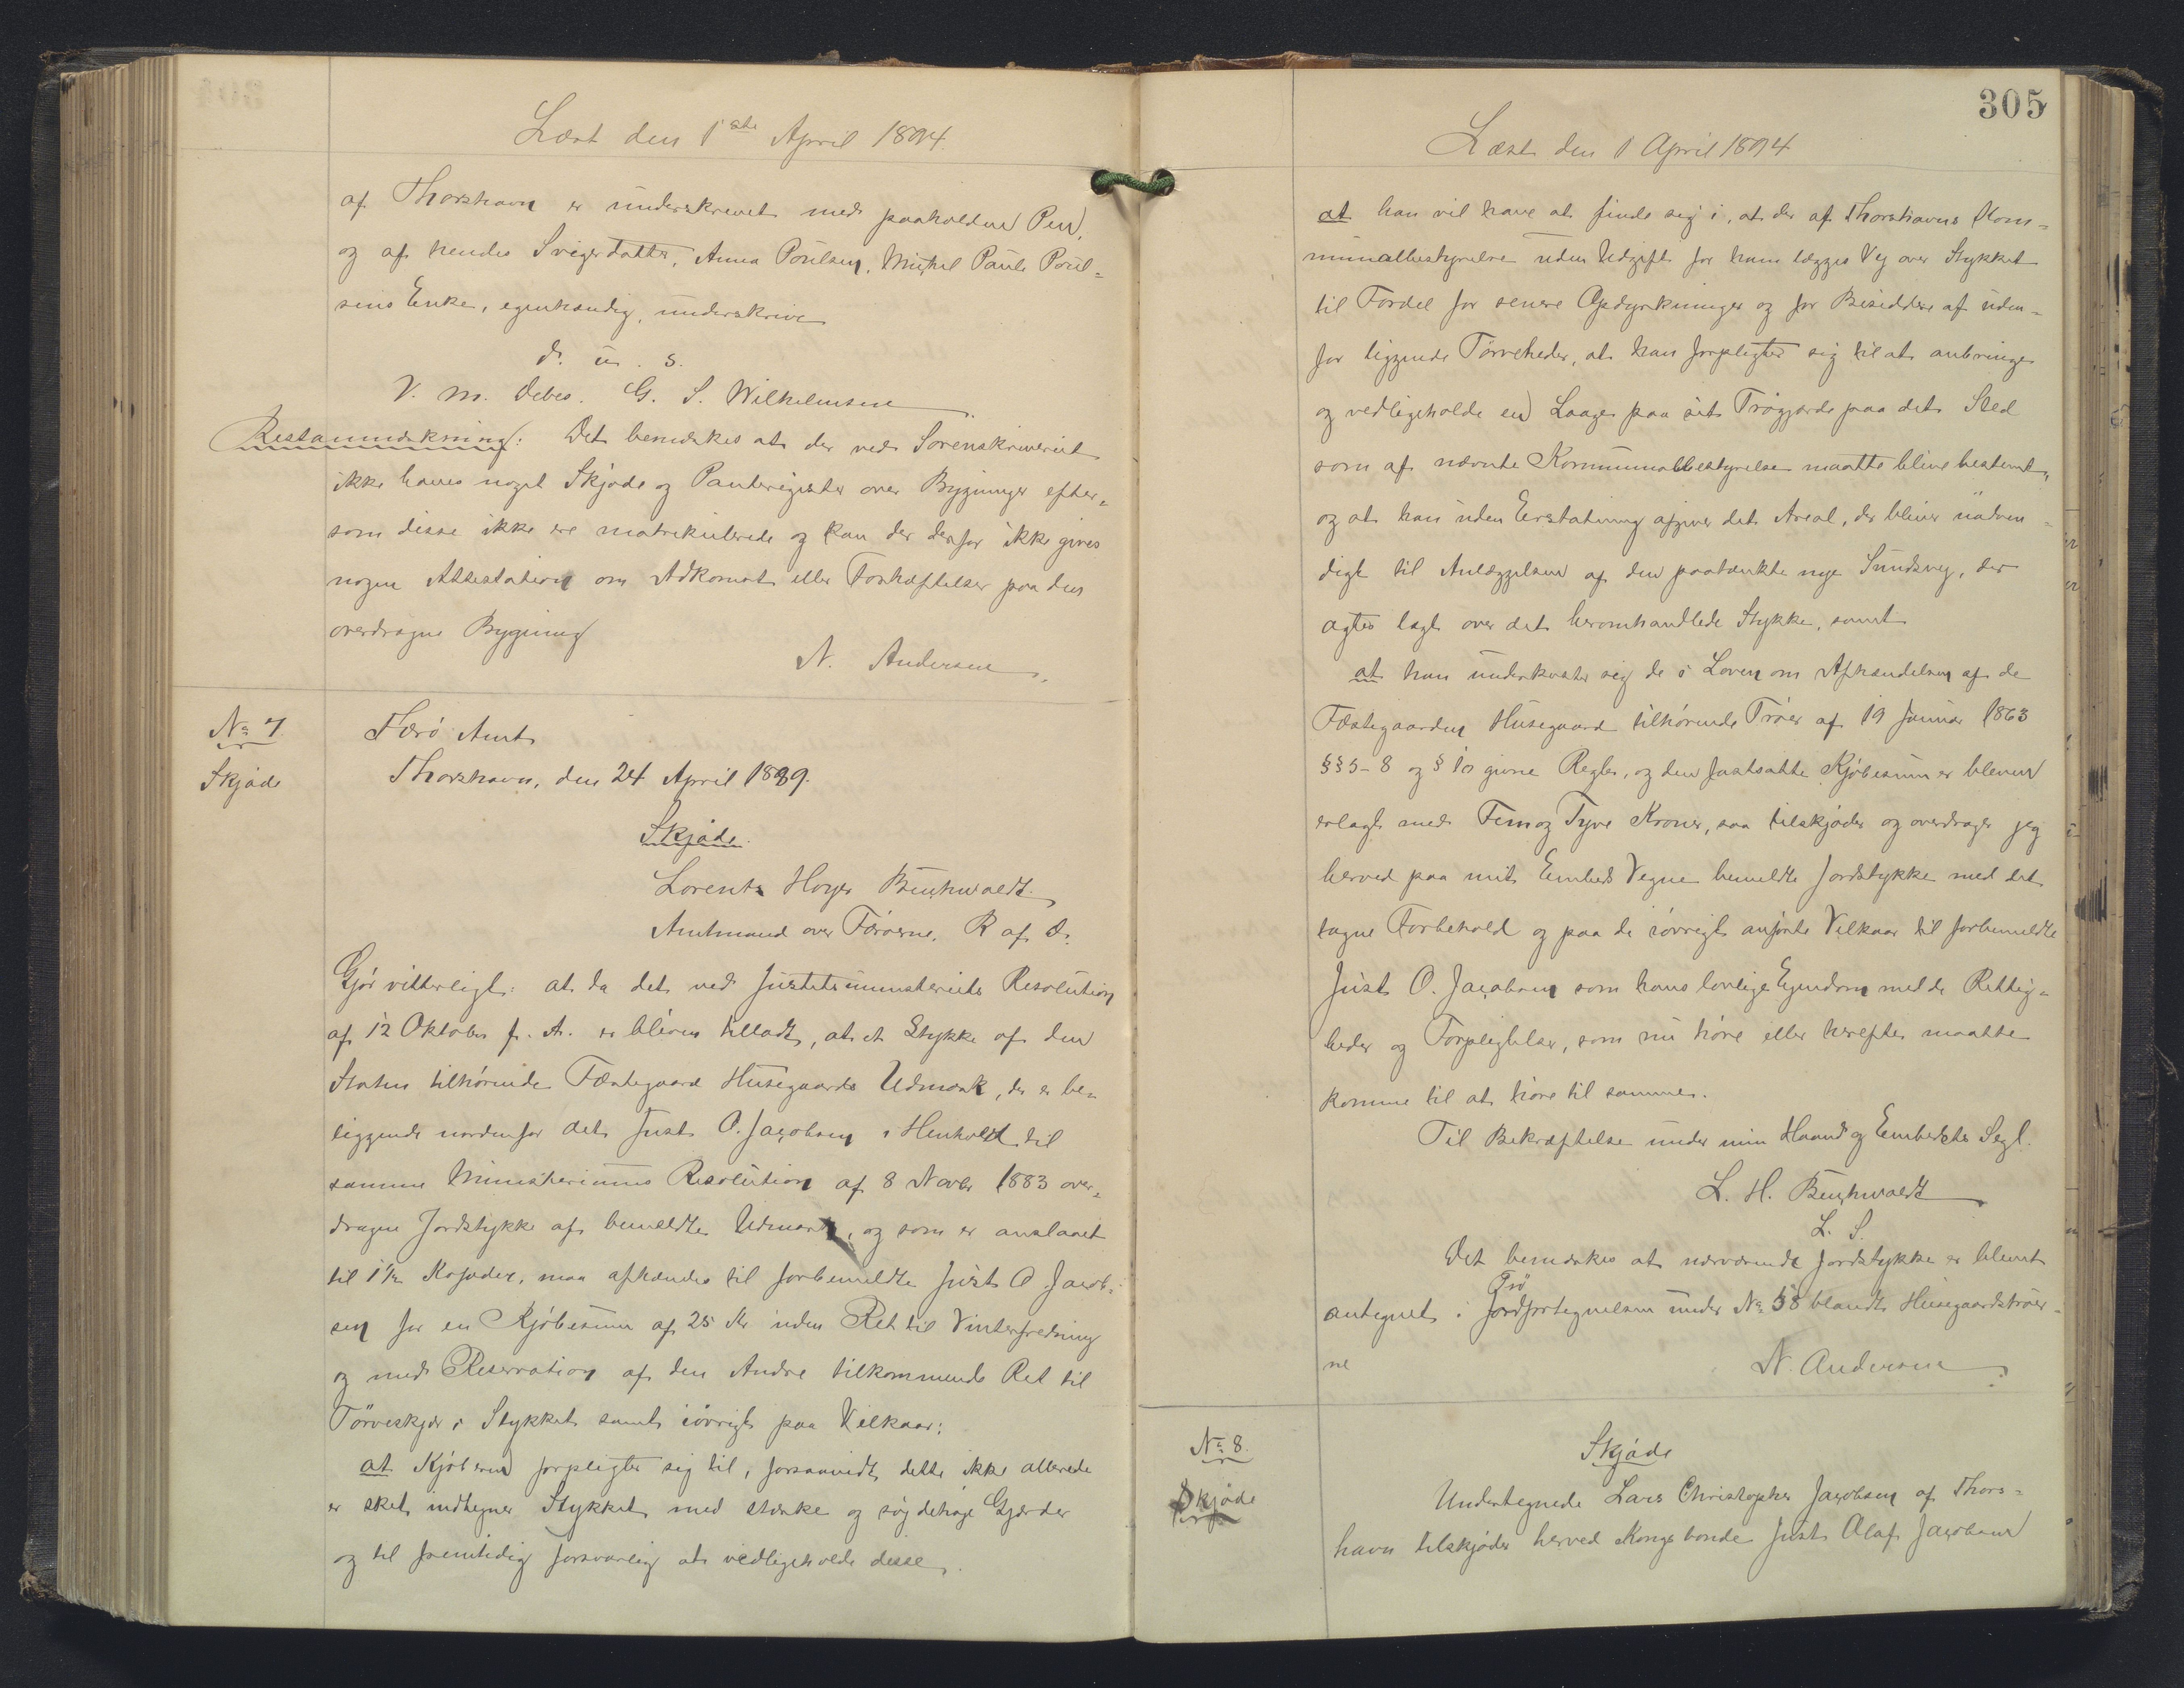 Læst den 1ste April 1894.
af Thorshavn er underskrevet med paaholden Pen,
og af hendes Svigerdatter, Anna Poulsen, Michel Pauli Poul-
sens Enke, egenhændig underskrive
d. u. s.
V. M. Debes. G. S. Wilhelmsen
Restanmærkning: Det bemærkes at der ved Sorenskriveriet
ikke haves noget Skjøde og Panteregister over Bygninger efter-
som disse ikke ere matrikulerede og kan der derfor ikke gives
nogen Attestation om Adkomst eller Forhæftelser paa den
overdragne Bygning
N. Andersen.
No 7.
Skjøde
Færø Amt
Thorshavn, den 24 April 1889.
Skjøde.
Lorentz Høyer Buchwaldt
Amtmand over Færøerne, R af D.
Gjør vitterligt: at da det ved Justitsministeriets Resolution
af 12 Oktober f. A. er bleven tilladt, at et Stykke af den
Staten tilhørende Fæstegaard Husegaards Udmark, der er be-
liggende nordenfor det Just O. Jacobsen i Henhold til
samme Ministeriums Resolution af 8 Novbr 1883 over-
dragne Jordstykke af bemeldte Udmark, og som er anslaaet
til 1½ Kofoder, maa afhændes til forbemeldte Just O. Jacob-
sen for en Kjøbesum af 25 Kr uden Ret til Vinterfredning
og med Reservation af den Andre tilkommende Ret til
Tørveskjær i Stykket samt iøvrigt paa Vilkaar:
at Kjøberen forpligter sig til, forsaavidt dette ikke allerede
er sket indhegner Stykket med stærke og søgdehøje Gjærder
og til fremtidig forsvarlig at vedligeholde disse,
305
Læst den 1 April 1894
at han vil have at finde sig i, at der af Thorshavns Kom-
munalbestyrelse uden Udgift for ham lægges Vej over Stykket
til Fordel for senere Opdyrkninger og for Besiddere af uden-
for liggende Tørveheder, at han forpligter sig til at anbringe
og vedligeholde en Laage paa sit Trøgjærde paa det Sted
som af nævnte Kommunalbestyrelse maatte blive bestemt,
og at han uden Erstatning afgiver det Areal, der bliver nødven-
digt til Anlæggelsen af den paatænkte nye Sundsvej, der
agtes lagt over det heromhandlede Stykke, samt
at han underkaster sig de i Loven om Afhændelsen af de
Fæstegaarden Husegaard tilhørende Trøer af 19 Januar 1863
§§ 5-8 og § 10 givne Regler, og den fastsatte Kjøbesum er bleven
erlagt med Fem og Tyve Kroner, saa tilskjøder og overdrager jeg
herved paa mit Embeds Vegne bemeldte Jordstykke med det
tagne Forbehold og paa de iøvrigt anførte Vilkaar til forbemeldte
Just O. Jacobsen som hans lovlige Ejendom med de Rettig-
heder og Forpligtelser, som nu høre eller herefter maatte
komme til at høre til samme.
Til Bekræftelse under min Haand og Embedets Segl.
L. H. Buchwaldt
L. S.
Det bemærkes at nærværende Jordstykke er blevet
Trø
antegnet i Jordfortegnelsen under No 38 blandt Husegaardstrøer-
ne
N. Andersen
No 8.
Skjøde
Skjøde
Undertegnede Lars Christopher Jacobsen af Thors-
havn tilskjøder herved Kongsbonde Just Olaf Jacobsen